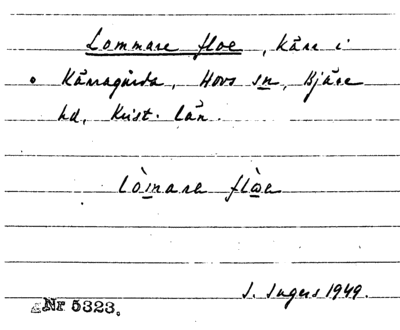 Lommare floe, kärr i
Kärragårda, Hovs sn, Bjäre
hd, Krist. län.
lòmara flòa
I. Ingers 1949.
Nr 5323.